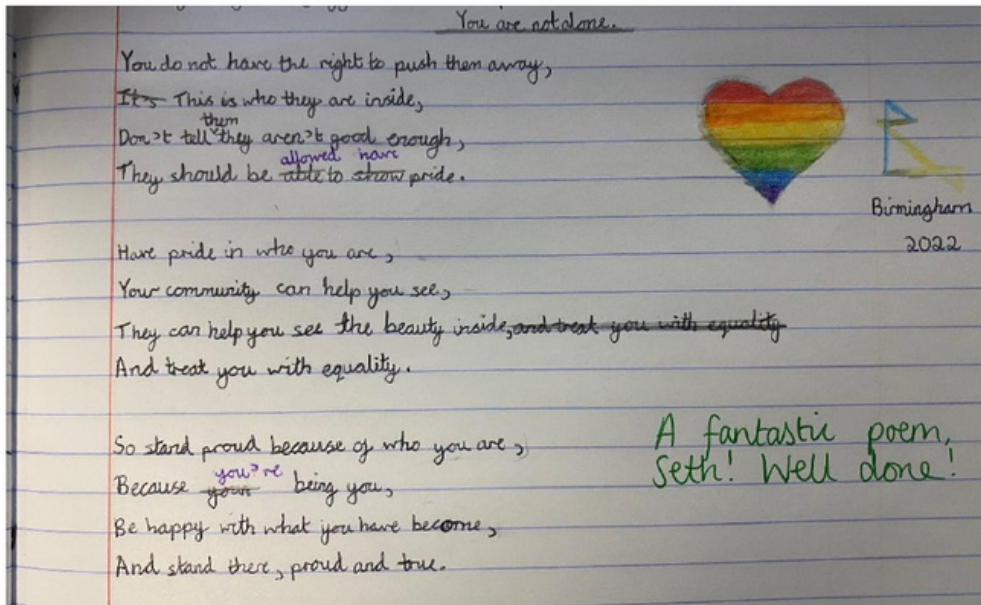 You are not alone.
You do not have the right to push them away,
It's This is who they are inside,
them
Don't tell they aren't good enough,
allowed have
They should be able to show pride.
Birmingham
2022
Have pride in who you are,
Your community can help you see,
They can help you see the beauty inside, and treat you with equality
And treat you with equality.
So stand proud because of who you are,
you're
Because your being you,
Be happy with what you have become,
And stand there, proud and true.
A fantastic poem,
Seth! Well done!